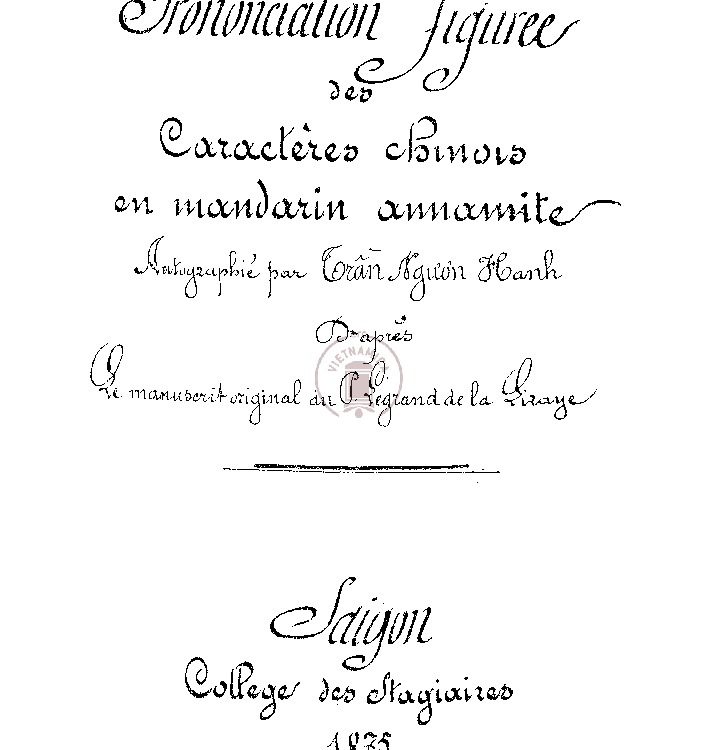 Prononciation figurée
des
Caractères chinois
en mandarin annamite
Autographié par Trần Nguơn Hanh
D'après
Le manuscrit original du P. Legrand de la Liraye
VIETNAM
Saigon
College des Stagiaires
1875